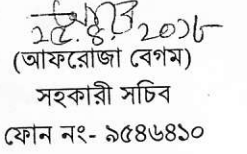 ২৫.৪.২০১৮
(আফরোজা বেগম)
সহকারী সচিব
ফোন নং- ৯৫৪৬৪১০